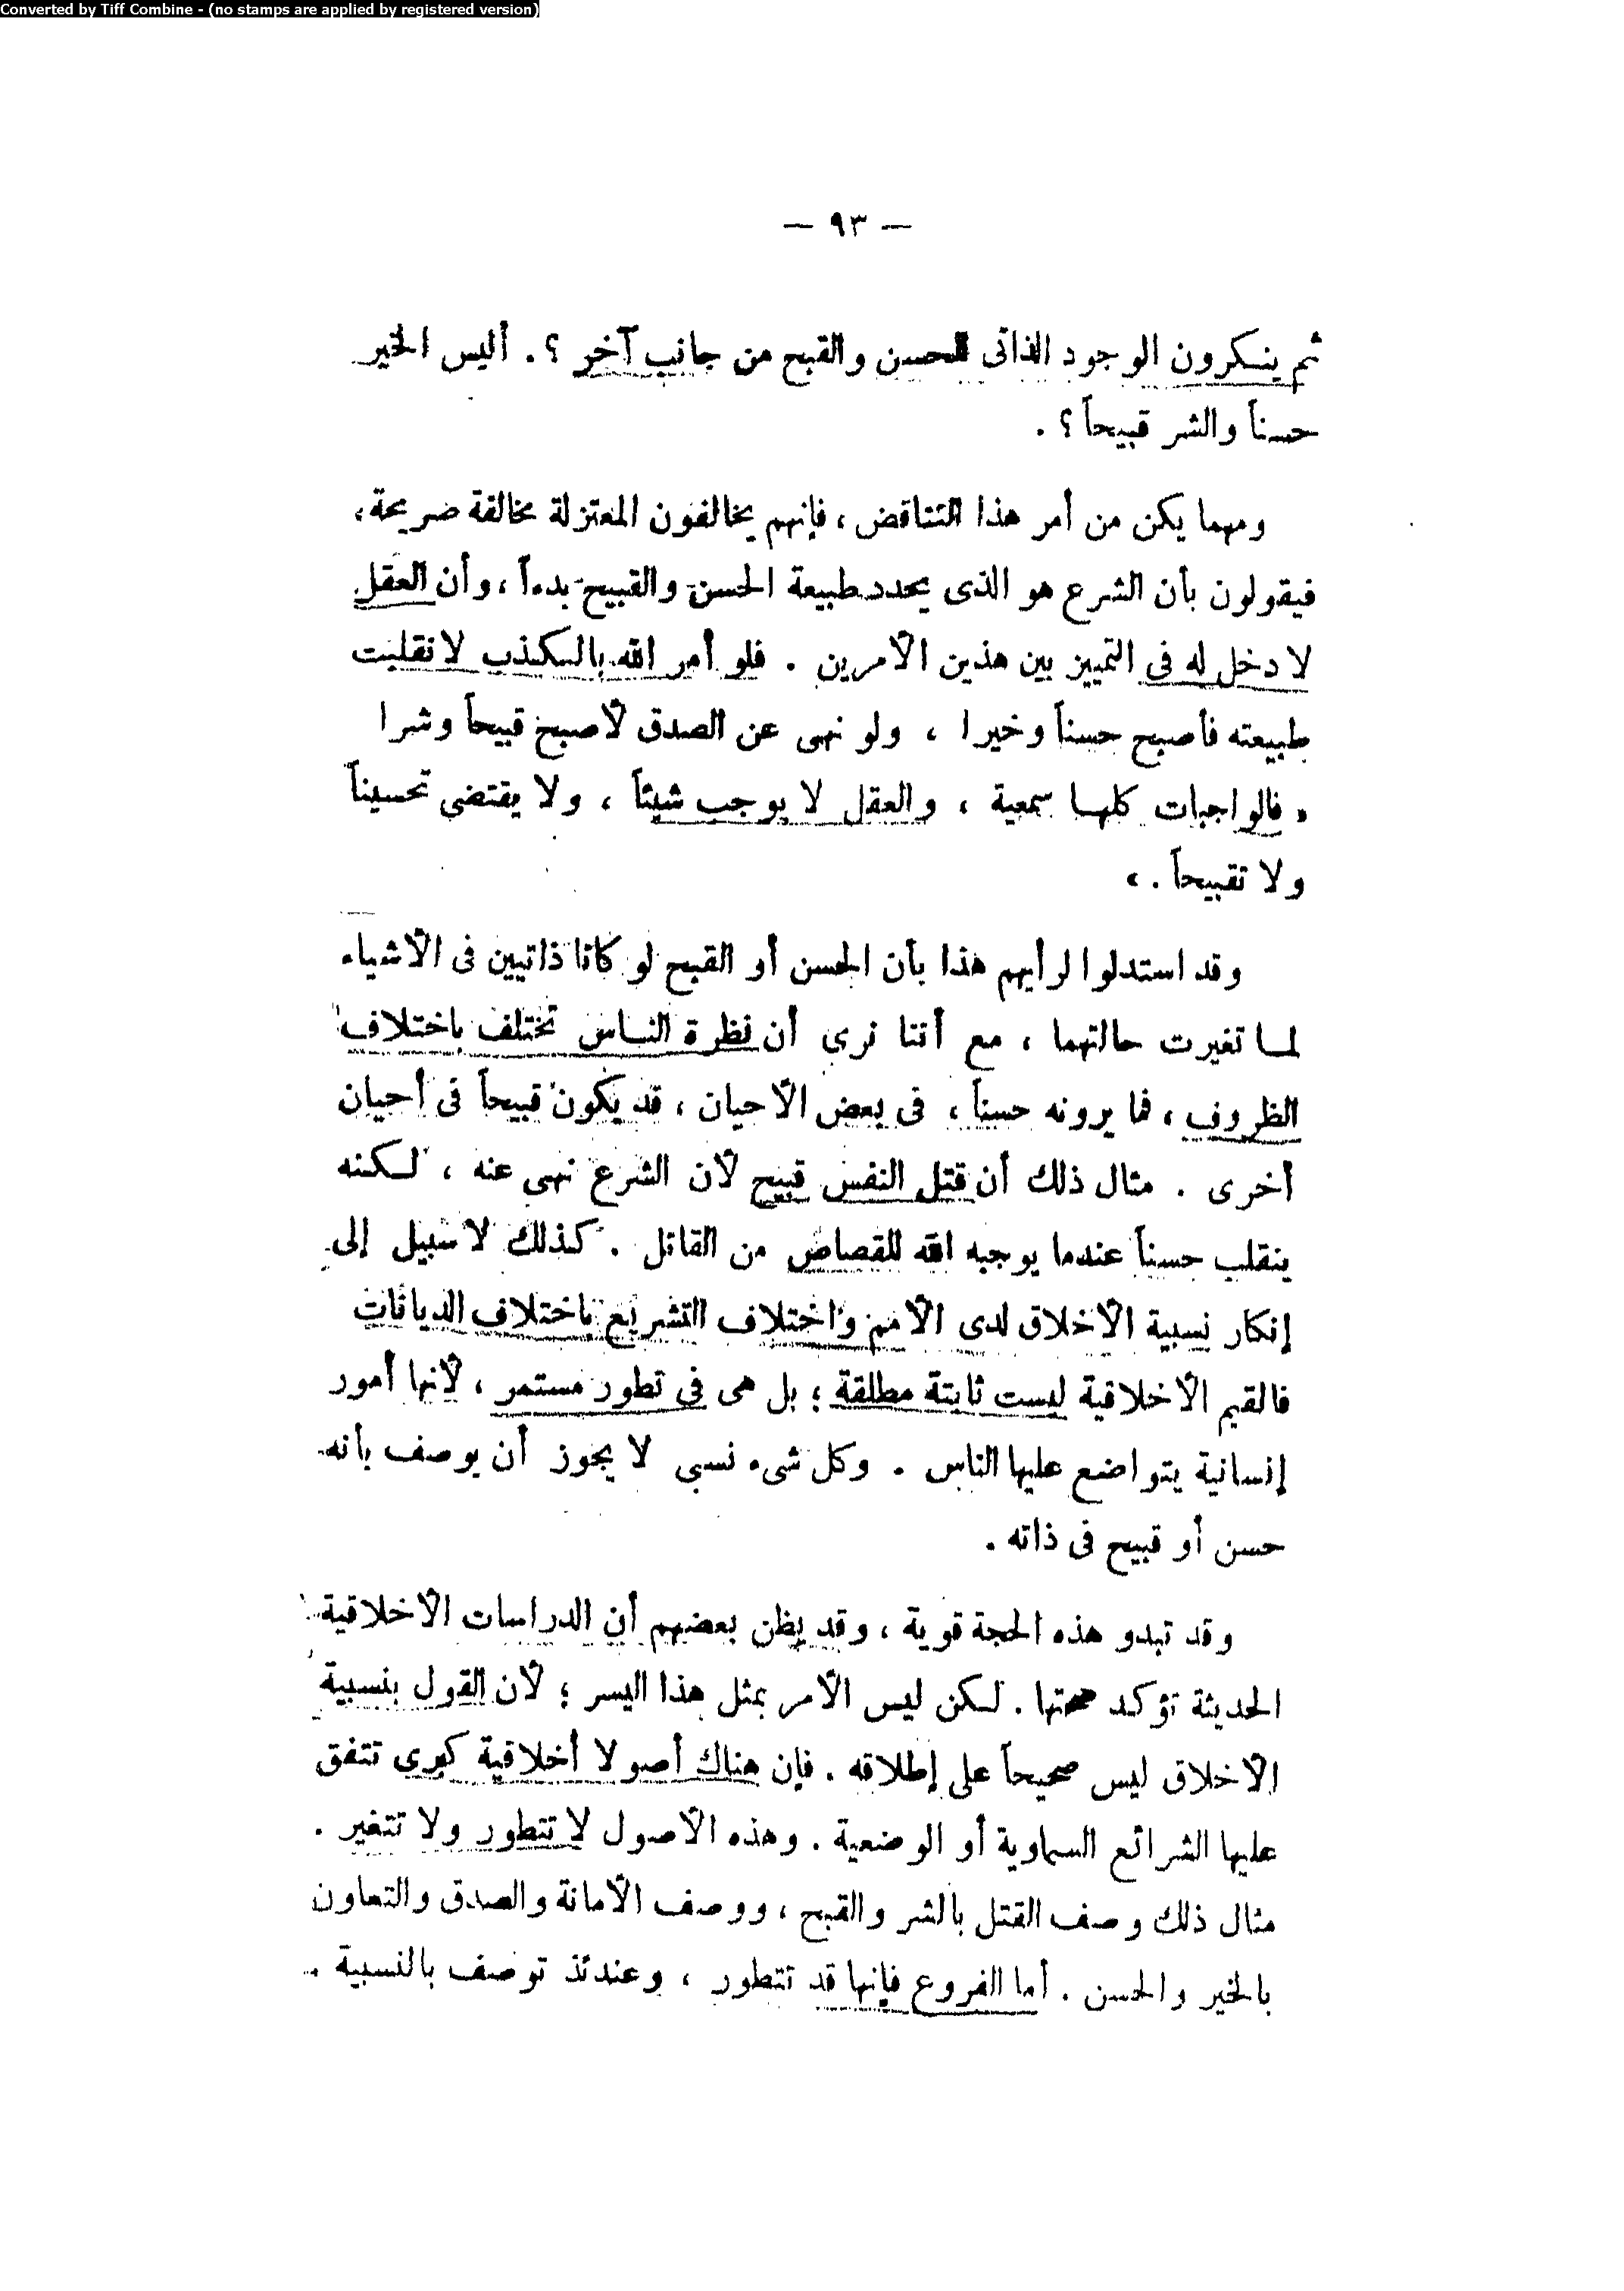 Converted by Tiff Combine - (no stamps are applied by registered version)
— ٩٣ —
ثم ينكرون الوجود الذاتى للحسن والقبح من جانب آخر ؟. أليس الخير
حسناً والشر قبيحاً ؟ .
ومهما يكن من أمر هذا التناقض ، فإنهم يخالفون المعتزلة مخالفة صريحة ،
فيقولون بأن الشرع هو الذى يحدد طبيعة الحسن والقبيح بدءاً ، وأن العقل
لا دخل له فى التمييز بين هذين الأمرين . فلو أمر الله بالكذب لانقلبت
طبيعته فأصبح حسناً وخيرا ، ولو نهى عن الصدق لأصبح قبيحاً وشرا
« فالواجبات كلها سمعية ، والعقل لا يوجب شيئاً ، ولا يقتضى تحسيناً
ولا تقبيحاً . »
وقد استدلوا لرأيهم هذا بأن الحسن أو القبح لو كانا ذاتيين فى الأشياء
لما تغيرت حالتهما ، مع أننا نرى أن نظرة الناس تختلف باختلاف
الظروف ، فما يرونه حسناً ، فى بعض الأحيان ، قد يكون قبيحاً فى أحيان
أخرى . مثال ذلك أن قتل النفس قبيح لأن الشرع نهى عنه ، لكنه
ينقلب حسناً عندما يوجبه الله للقصاص من القاتل . كذلك لا سبيل إلى
إنكار نسبية الأخلاق لدى الأمم واختلاف التشريع باختلاف الديانات
فالقيم الأخلاقية ليست ثابتة مطلقة ؛ بل هى فى تطور مستمر ، لأنها أمور
إنسانية يتواضع عليها الناس . وكل شىء نسبى لا يجوز أن يوصف بأنه
حسن أو قبيح فى ذاته .
وقد تبدو هذه الحجة قوية ، وقد يظن بعضهم أن الدراسات الأخلاقية
الحديثة تؤكد صحتها . لكن ليس الأمر بمثل هذا اليسر ؛ لأن القول بنسبية
الأخلاق ليس صحيحاً على إطلاقه . فإن هناك أصولا أخلاقية كبرى تتفق
عليها الشرائع السماوية أو الوضعية . وهذه الأصول لا تتطور ولا تتغير .
مثال ذلك وصف القتل بالشر والقبح ، ووصف الأمانة والصدق والتعاون
بالخير والحسن . أما الفروع فإنها قد تتطور ، وعندئذ توصف بالنسبية .